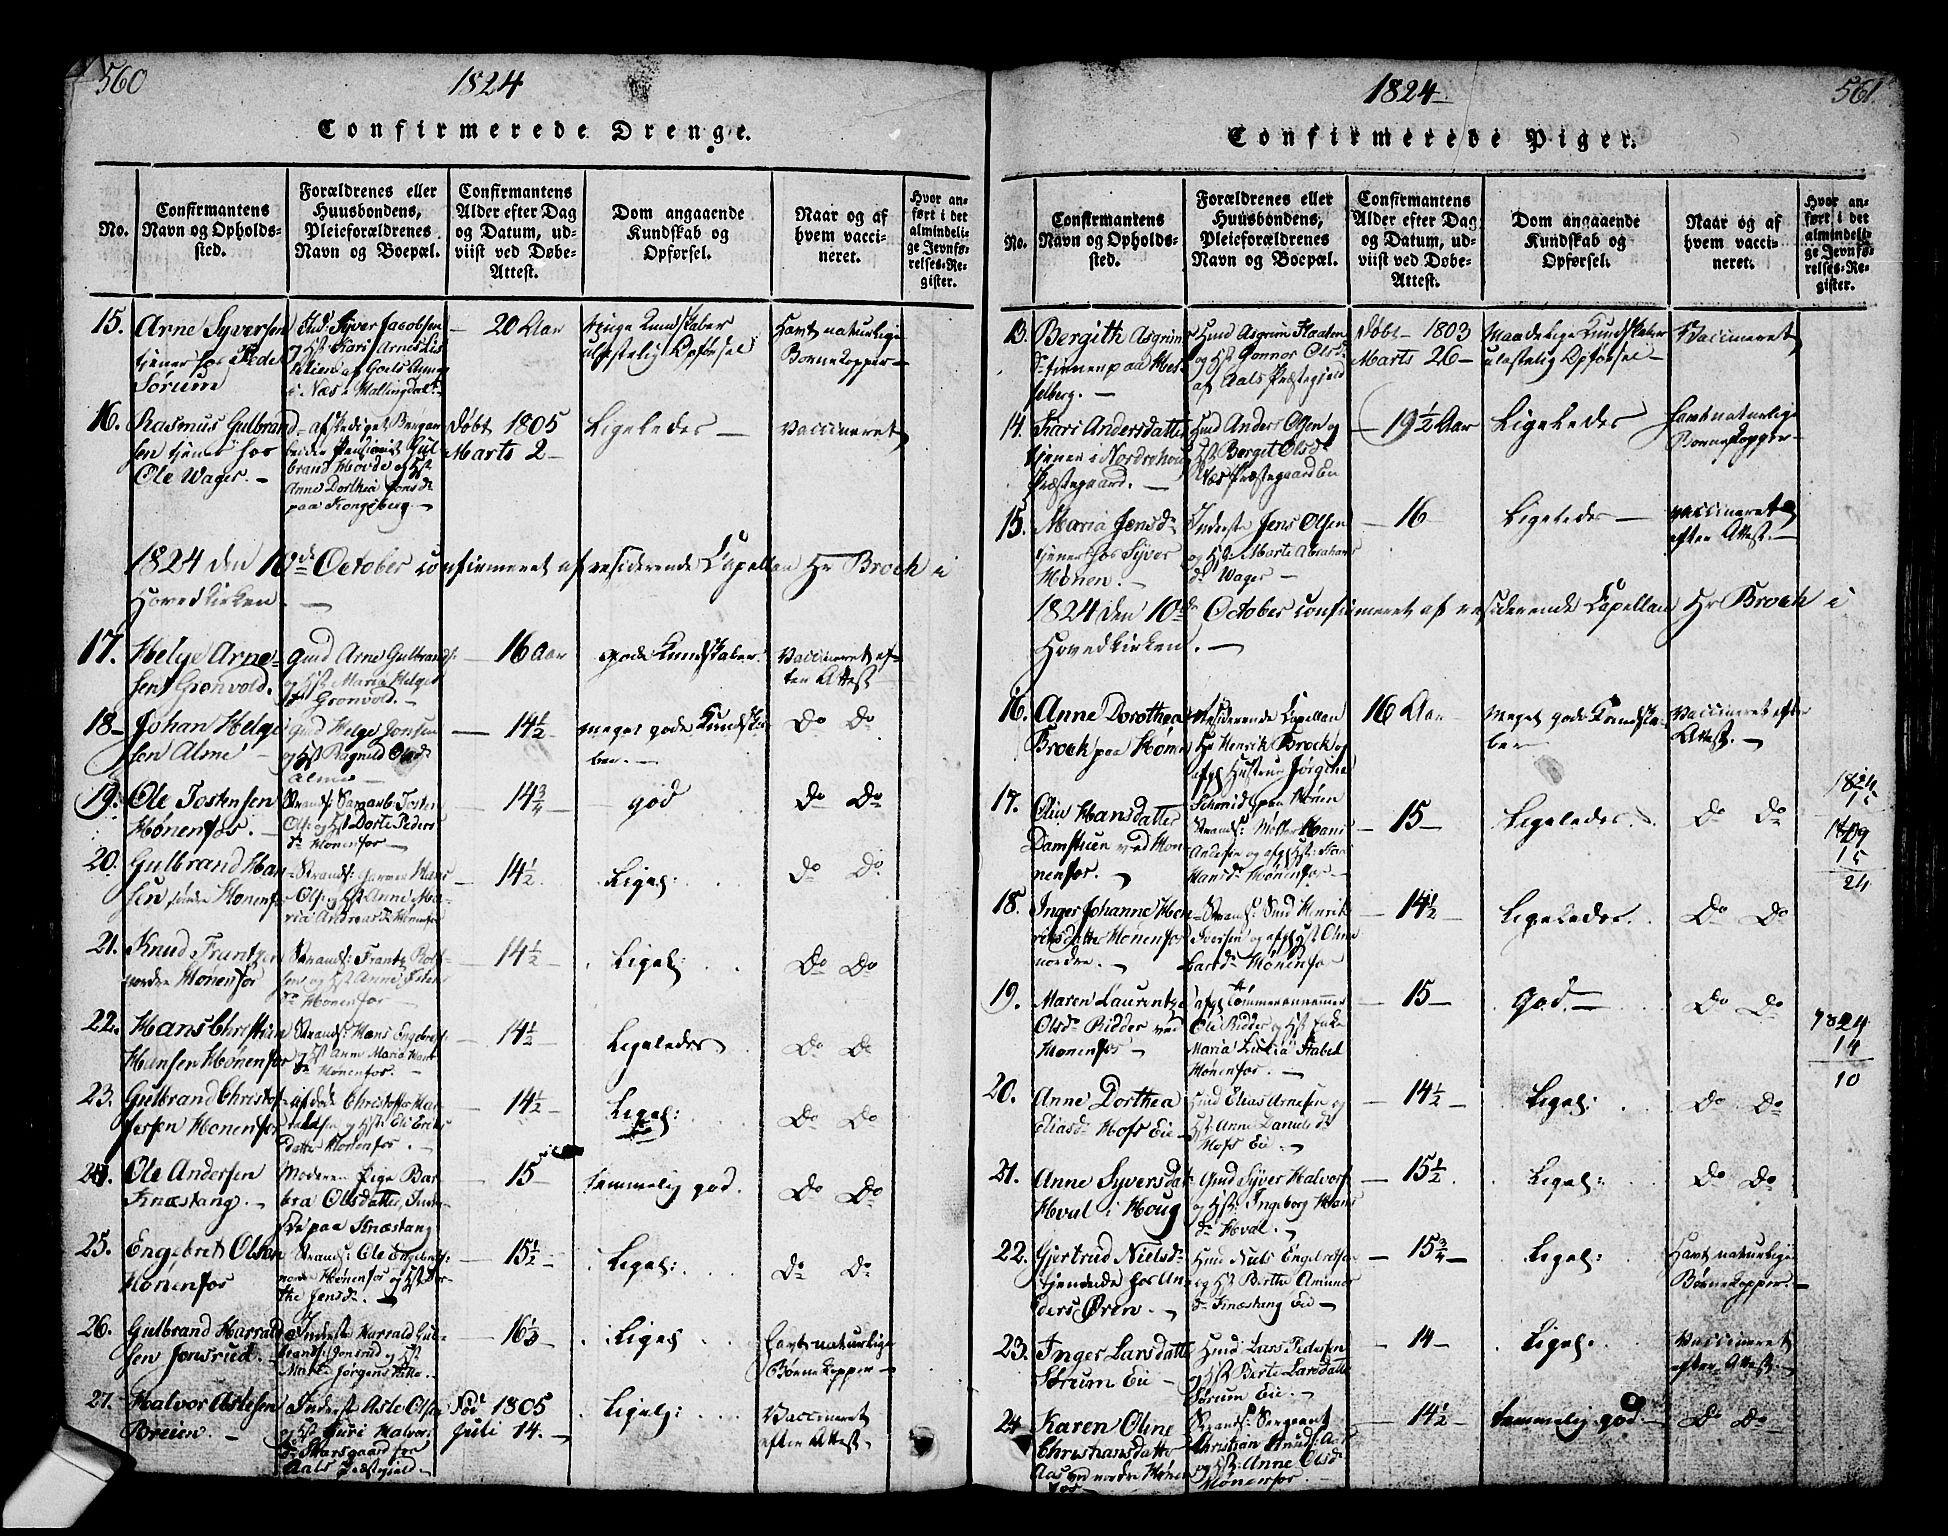 560
1824
Confirmerede Drenge.
No.
Confirmantens
Navn og Opholds-
sted.
Forældrenes eller
Huusbondens,
Pleieforældrenes
Navn og Boepæl.
Confirmantens
Alder efter Dag
og Datum, ud-
viist ved Døbe-
Attest.
Dom angaaende
Kundskab og
Opførsel.
Naar og af
hvem vacci-
neret.
Hvor an-
ført i det
almindeli-
ge Jevnfø-
relses-Re-
gister.
15.
Arne Syversen
tjener hos Peder
Sørum
Syver Jacobsen
og Kari Arnesd
i Næs i Hallingdal
20 Aar
ringe Kundskaber
ulastelig Opførsel
Havt naturlige
Børnekopper
16.
Rasmus Gulbrand
sen tjener hos
Ole Wager.
afskediget Bergar
beider Pensionist Gul
brand Hovde og
Anne Dorthea Jonsd
paa Kongsberg
Døbt 1805
Marts 2
Ligeledes
Vaccineret
1824 den 10de October confirmeret af residerende Capellan Hr Brock i
Hovedkirken.
17.
Helge Arne-
sen Gronvold.
Gmd Arne Gulbrands:
og Maria Helges
d Gronvold.
16 Aar
gode Kundskaber
Vaccineret ef-
ter Attest
18
Johan Helge
sen Alme
Gmd Helge Jonsen
og Ragnild Olsd
Alme
14 1/2
meget gode Kundska
ber.
Do Do
19.
Ole Jostensen
Hønenfos.
Strands: Sargarb: Josten
Ols og Dorte Peders
d Hønenfos
14 3/4
god
Do Do
20.
Gulbrand Han
sen, søndre Hønenfos
Ols og Anne Ma-
ria Andreasd Hønenfos
14 1/2
Ligel:
Do Do
21.
Knud Frantzen
nordre Hønenfos
Strands: Frantz
sen og Anne
d Hønenfos
14 1/2
Ligel:
Do Do
22.
Hans Christian
Hansen Hønenfos
Strands: Hans Engebret
og Anne Maria Han
d Hønenfos.
14 1/2
Ligeledes
Do Do
23.
Gulbrand Christof
fersen Hønenfos
afdøde Christoffer Har
aldsen og Eli Eriks
datter Hønenfos.
14 1/2
Ligel:
Do Do
24.
Ole Andersen
Knæstang.
Moderen Pige Bar
bra Olsdatter, Inder
ste paa Knæstang
15
temmelig god.
Do Do
25.
Engebret Olsen
Hønenfos
Strands: Ole Engebrets:
nordre Hønenfos og Dor
the Jensd.
15 1/2
Ligel:
Do Do
26.
Gulbrand Harrald
sen Jonsrud.
Inderst Harrald Gul
brands: Jonsrud og
Marte Jørgensdatter.
16 1/2
Ligel
Havt naturlige
Børnekopper
27.
Halvor Aslesen
Breien.
Inderst Asle Olsen
og Guri Halvor
d Skarsgaard fra
Aals Præstegield
Fød 1805
Juli 14.
Ligel:
Vaccineret
efter Attest
1824
561
Confirmerede Piger.
No.
Confirmantens
Navn og Opholds-
sted.
Forældrenes eller
Huusbondens,
Pleieforældrenes
Navn og Boepæl.
Confirmantens
Alder efter Dag
og Datum, ud-
viist ved Døbe-
Attest.
Dom angaaende
Kundskab og
Opførsel.
Naar og af
hvem vacci-
neret.
Hvor an-
ført i det
almindeli-
ge Jevnfø-
relses-Re-
gister.
13.
Bergith Asgrim
d tienen paa Hes-
selberg.
Hmd Asgrim
og Gonnor Olsd
af Aals Præstegield
Døbt 1803
Marts 26
Maadelige Kundskaber
ulastelig Opførsel
Vaccineret
14.
Kari Andersdatter
tjener i Nordrehoug
Præstegaard.
Hmd Anders Olsen og
Bergit Olsd
Næs Præstegaard
19 1/2 Aar
Ligeledes
Havt naturlige
Børnekopper
15.
Maria Jensd
tjener hos Syver
Hønen.
Inderste Jens Olsen
og Marte Abrahams
d Wager
16
Ligeledes
Vaccineret
efter Attest.
1824 den 10de October confirmeret af residerende Capellan Hr Brock i
Hovedkirken.
16.
Anne Dorothea
Brock paa Hønen
Residerende Capellan
Hr Henrik Brock og
afg Hustrue Jørgine
Schmidt paa Hønen
16 Aar
meget gode Kundska-
ber
Vaccineret efter
Attest.
17.
Hansdatter
Damstuen ved Høn
nenfos.
Strands: Møller Hans
Andersen og afg
Hansd Hønenfos
15
Ligeledes.
Do Do
18.
Inger Johanne Hen
riksdatter Hønenfos
nordre.
Strands: Smd Henrik
Iversen og afg Oline
Larsd Hønenfos
14 1/2
Ligeledes.
Do Do
19.
Maren Laurentze
Olsd Ridder ved
Hønenfos
afg Tømmerannammer
Ole Ridder og Enke
Maria Lucia Stabel
Hønenfos.
15
God.
Do Do
20.
Anne Dorthea
Eliasd Hofs Eie
Hmd Elias Arnesen og
Anne Daniels d
Hofs Eie.
14 1/2
Ligel:
Do Do
21.
Anne Syversdat
Hval i Houg
Gmd Syver Halvors
og Ingeborg Hans
d Hval.
15 1/2
Ligel:
Do Do
22.
Gjertrud Nielsd
tjenende hos An
ders Øren.
Hmd Niels Engebretsen
og Birthe Amunds
d Knæstang Eie
15 3/4
Ligel:
Havt naturlige
Børnekopper
23.
Inger Larsdatter
Sørum Eie
Hmd Lars Pedersen
og Berte Larsdatter
Sørum Eie.
14
Ligel:
Vaccineret
efter Attest.
24
Karen Oline
Christiansdatter
Aas ved nordre Hønen
fos
Strands: Sergeant
Christian Knuds: Aas
og Anne Olsd
Hønenfos
14 1/2
temmelig god
Do Do
1824
15
1809
15
24
1824
14
10